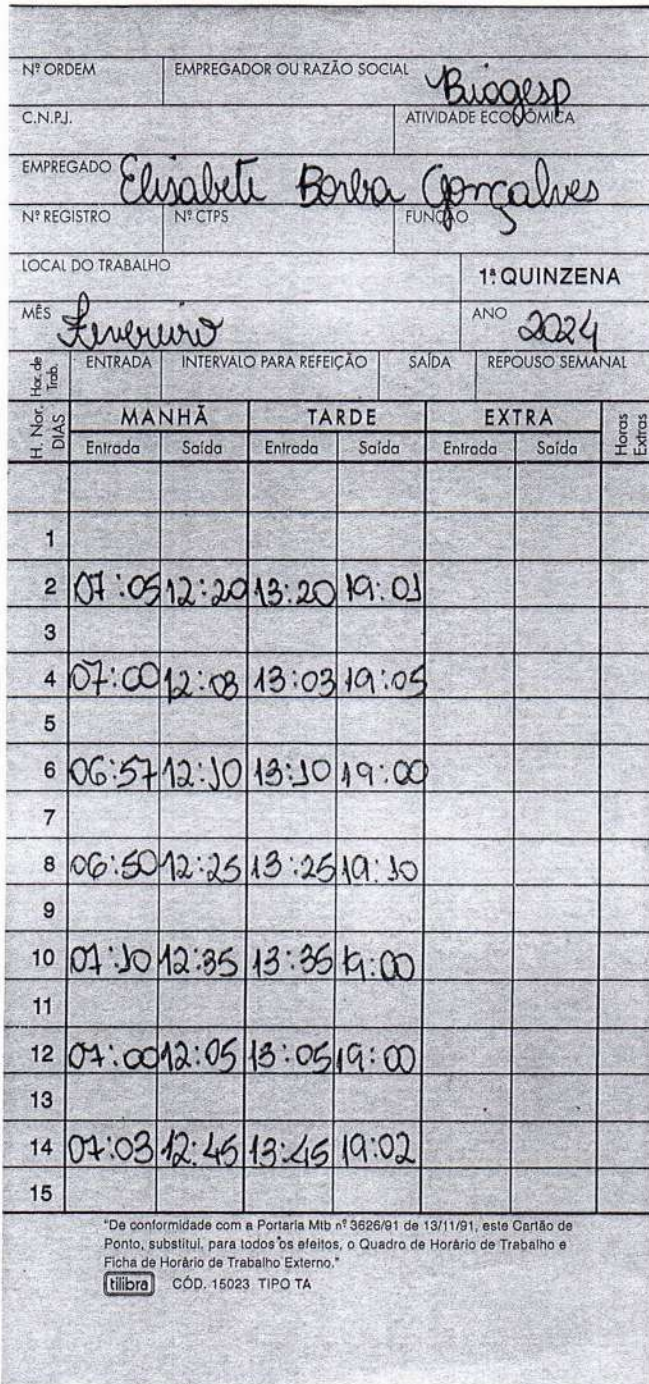 Nº ORDEM EMPREGADOR OU RAZÃO SOCIAL Biogesp
C.N.P.J. ATIVIDADE ECONÔMICA
EMPREGADO Elisabete Borba Gonçalves
Nº REGISTRO Nº CTPS FUNÇÃO
LOCAL DO TRABALHO 1ª QUINZENA
MÊS Fevereiro ANO 2024
Hor. de Trab. ENTRADA INTERVALO PARA REFEIÇÃO SAÍDA REPOUSO SEMANAL
H. Nor. DIAS MANHÃ TARDE EXTRA Horas Extras
Entrada Saída Entrada Saída Entrada Saída
1
2 07:05 12:20 13:20 19:01
3
4 07:00 12:03 13:03 19:05
5
6 06:57 12:10 13:10 19:00
7
8 06:50 12:25 13:25 19:10
9
10 07:10 12:35 13:35 19:00
11
12 07:00 12:05 13:05 19:00
13
14 07:03 12:45 13:45 19:02
15
"De conformidade com a Portaria Mtb nº 3626/91 de 13/11/91, este Cartão de
Ponto, substitui, para todos os efeitos, o Quadro de Horário de Trabalho e
Ficha de Horário de Trabalho Externo."
tilibra CÓD. 15023 TIPO TA